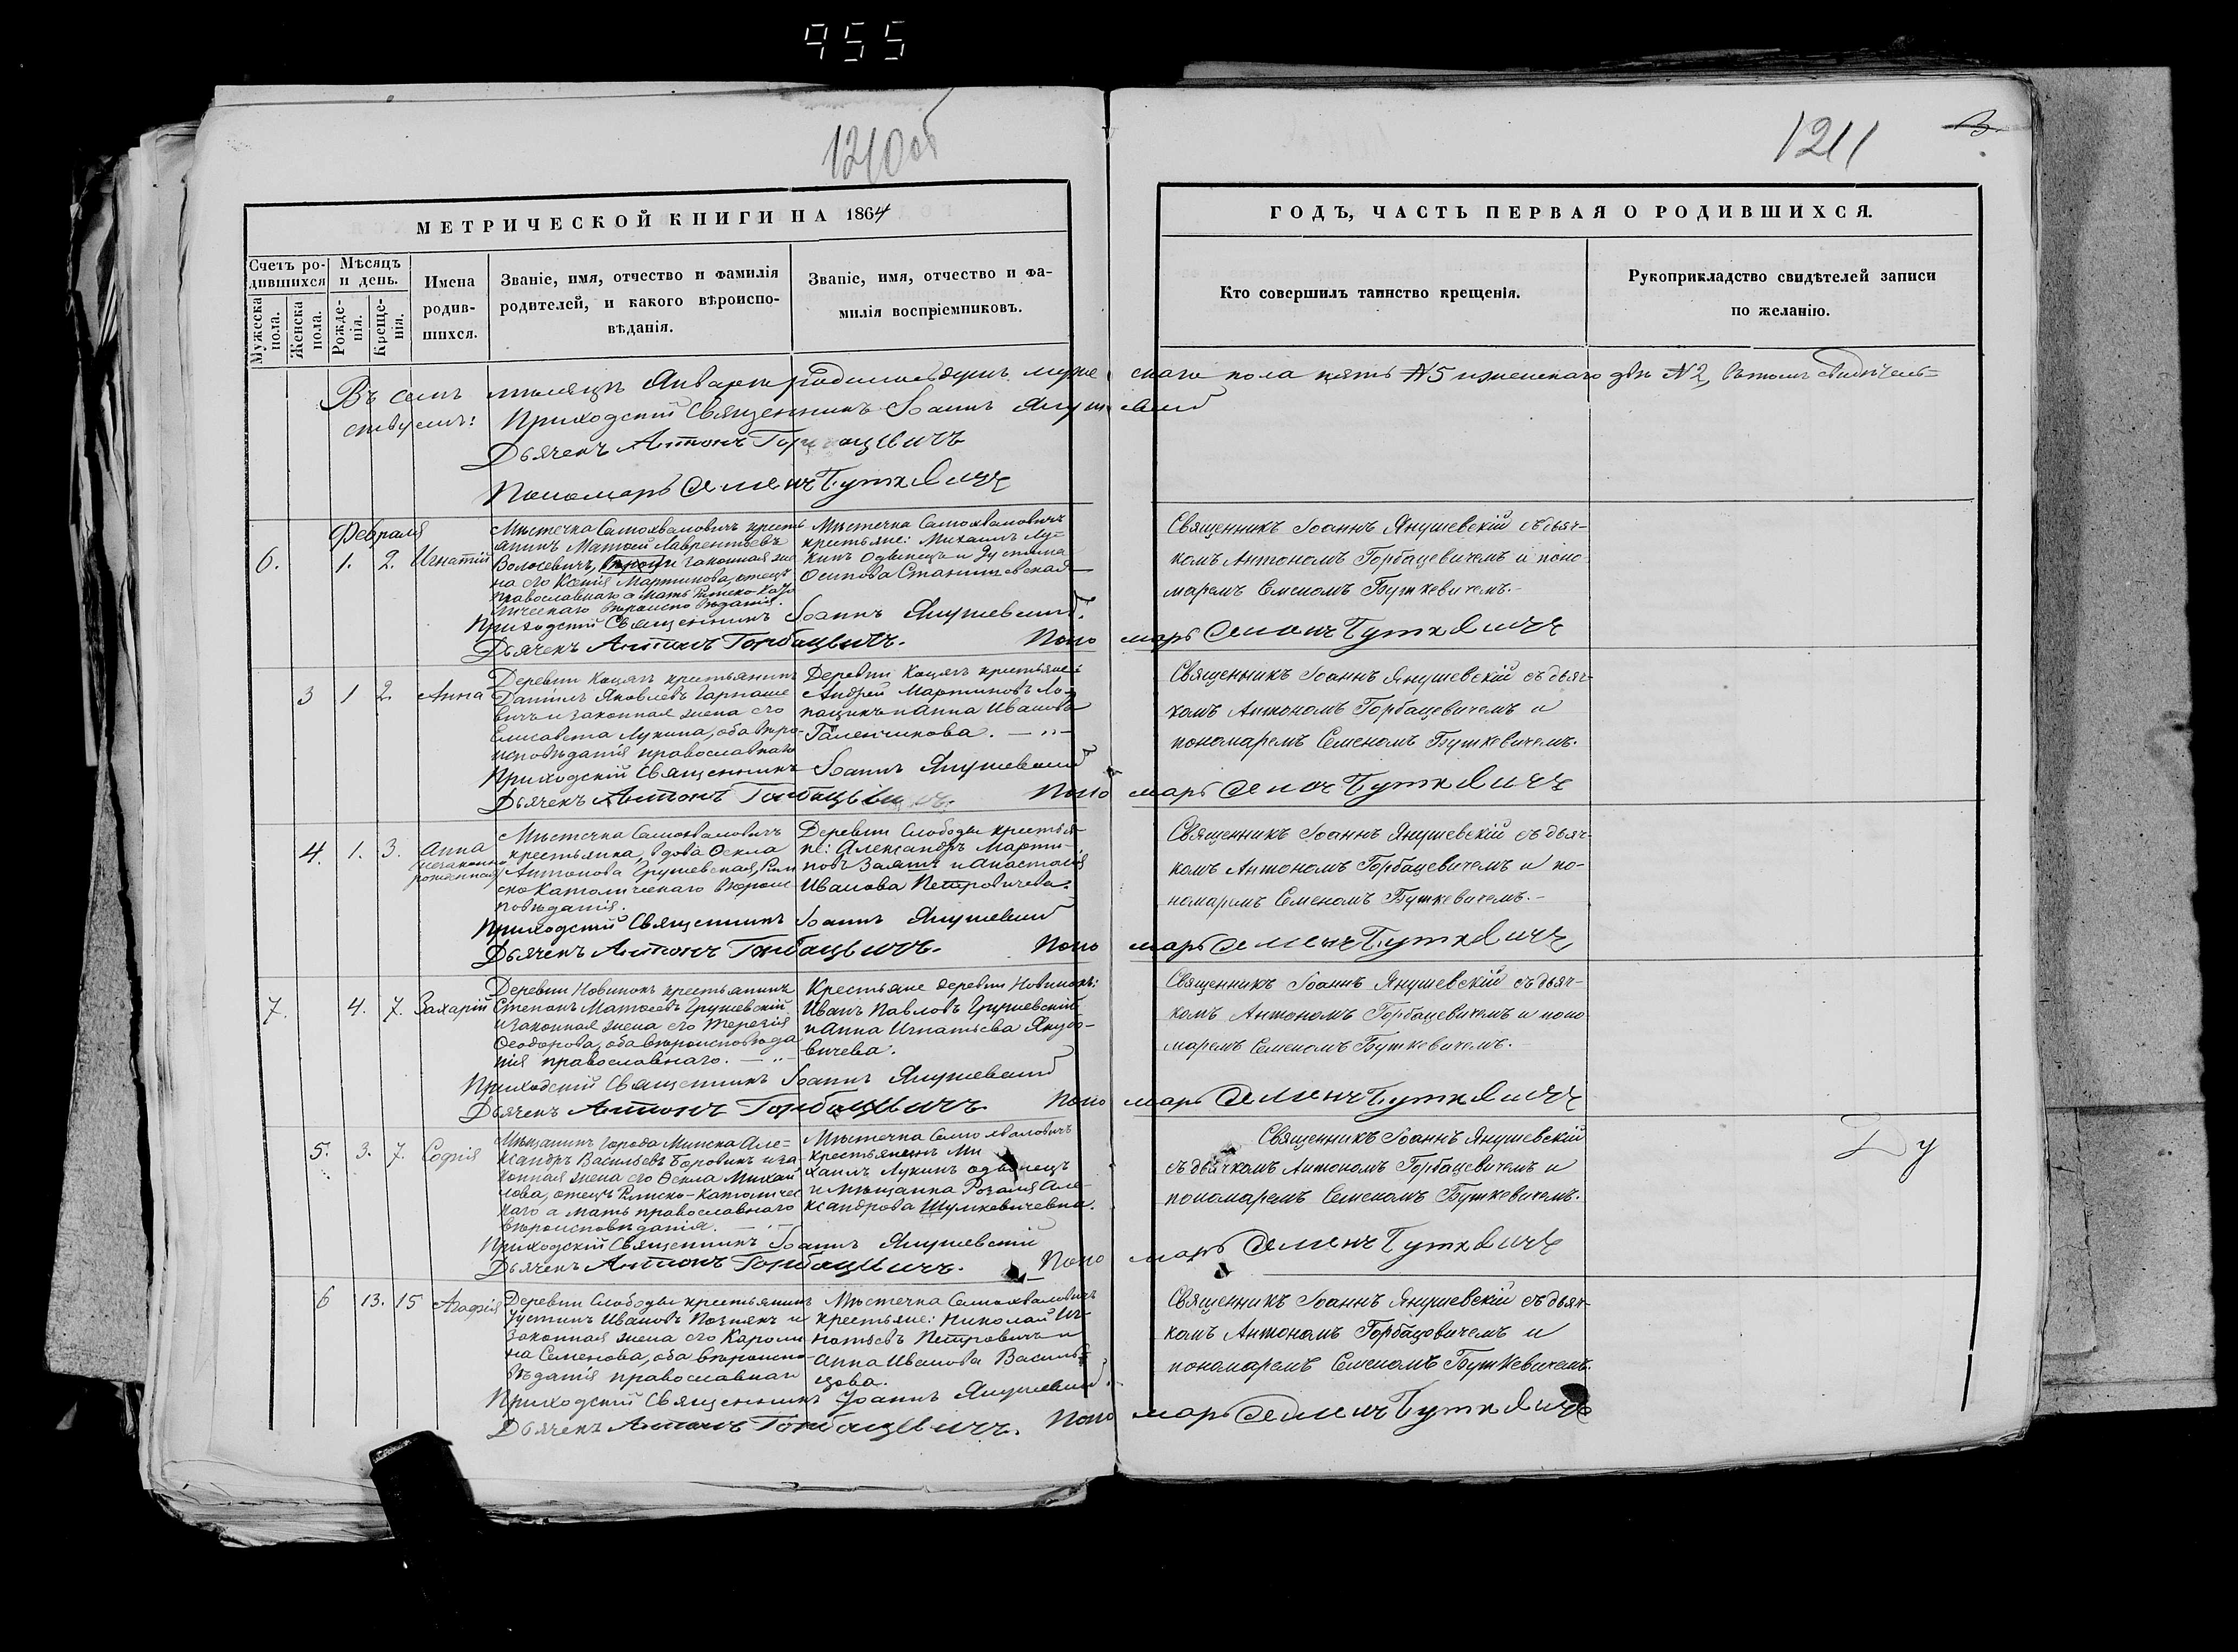 955
1210 об
1211
МЕТРИЧЕСКОЙ КНИГИ НА 1864
ГОДЪ, ЧАСТЬ ПЕРВАЯ О РОДИВШИХСЯ.
Счетъ ро-
дившихся
Мужеска пола.
Женска пола.
Мѣсяцъ
и день.
Рожде-
нія.
Креще-
нія.
Имена
родив-
шихся.
Званіе, имя, отчество и фамилія
родителей, и какого вѣроиспо-
вѣданія.
Званіе, имя, отчество и фа-
милія воспріемниковъ.
Кто совершилъ таинство крещенія.
Рукоприкладство свидѣтелей записи
по желанію.
Въ семъ мѣсяцѣ Январѣ родилось душъ муже скаго пола пять №5 и женскаго двѣ №2, въ томъ свидѣтель=
ствуемъ: Приходскій Священникъ Іоаннъ Янушевскій
Дьячекъ Антонъ Горбацевичъ
Пономарь Семенъ Буткевичъ
Февраля
6. 1. 2. Игнатій
Мѣстечка Самохваловичъ кресть
янинъ Матѳей Лаврентьевъ
Волосевичъ, законная же
на его Ксенія Мартинова, отецъ
православнаго а мать Римско-Като
лическаго вѣроисповѣданія.
Мѣстечка Самохваловичъ
крестьяне: Михаилъ Лу-
кинъ Одынецъ и Іустина
Осипова Станишевская
Священникъ Іоаннъ Янушевскій съ дьяч-
комъ Антономъ Горбацевичемъ и поно
маремъ Семеномъ Буткевичемъ.-
Приходскій Священникъ Іоаннъ Янушевскій.
Дьячекъ Антонъ Горбацевичъ. Поно марь Семенъ Буткевичъ
3 1 2. Анна
Деревни Кацякъ крестьянинъ
Даніилъ Яковлевъ Гарпаше
вичъ и законная жена его
Елисавета Лукина, оба вѣро-
исповѣданія православнаго
Деревни Кацякъ крестьяне:
Андрей Мартиновъ Ло-
пацикъ и Анна Иванова
Галенчикова.
Священникъ Іоаннъ Янушевскій съ дьяч-
комъ Антономъ Горбацевичемъ и
пономаремъ Семеномъ Буткевичемъ.
Приходскій Священникъ Іоаннъ Янушевскій
Дьячекъ Антонъ Горбацевичъ. Поно марь Семенъ Буткевичъ
4. 1. 3. Анна
незаконно
рожденная
Мѣстечка Самохваловичъ
крестьянка, вдова Ѳекла
Антонова Грушевская, Рим
ско Католическаго вѣроис
повѣданія.
Деревни Слободы крестья-
не: Александръ Марти-
новъ Заяшъ и Анастасія
Иванова Петровичева.
Священникъ Іоаннъ Янушевскій съ дьяч-
комъ Антономъ Горбацевичемъ и по-
номаремъ Семеномъ Буткевичемъ.-
Приходскій Священникъ Іоаннъ Янушевскій
Дьячекъ Антонъ Горбацевичъ. Поно марь Семенъ Буткевичъ
7. 4. 7. Захарій
Деревни Новинокъ крестьянинъ
Степанъ Матѳеевъ Грушевскій
и законная жена его Терезія
Ѳеодорова, оба вѣроисповѣда
нія православнаго.
Крестьяне деревни Новинокъ:
Иванъ Павловъ Грушевскій
и Анна Игнатьева Якубо-
вичева.
Священникъ Іоаннъ Янушевскій съ дьяч-
комъ Антономъ Горбацевичемъ и поно
маремъ Семеномъ Буткевичемъ.-
Приходскій Священникъ Іоаннъ Янушевскій
Дьячекъ Антонъ Горбацевичъ. Поно марь Семенъ Буткевичъ
5. 3. 7. Софія
Мѣщанинъ города Минска Але-
ксандръ Васильевъ Боровикъ и за-
конная жена его Ѳекла Михай
лова, отецъ Римско-Католичес
каго а мать православнаго
вѣроисповѣданія.
Мѣстечка Самохваловичъ
крестьянинъ Ми
хаилъ Лукинъ Одынецъ
и мѣщанка Розалія Але-
ксандрова Шумкевичевна.
Священникъ Іоаннъ Янушевскій
съ дьячкомъ Антономъ Горбацевичемъ и
пономаремъ Семеномъ Буткевичемъ.
Приходскій Священникъ Іоаннъ Янушевскій
Дьячекъ Антонъ Горбацевичъ. Поно марь Семенъ Буткевичъ
6 13. 15 Агафія
Деревни Слободы крестьянинъ
Іустинъ Ивановъ Познякъ и
законная жена его Кароли
на Семенова, оба вѣроиспо-
вѣданія православнаго
Мѣстечка Самохваловичъ
крестьяне: Николай Иг-
натьевъ Петровичъ и
Анна Иванова Василь-
цова.
Священникъ Іоаннъ Янушевскій съ дьяч-
комъ Антономъ Горбацевичемъ и
пономаремъ Семеномъ Буткевичемъ.
Приходскій Священникъ Іоаннъ Янушевскій.
Дьячекъ Антонъ Горбацевичъ. Поно марь Семенъ Буткевичъ